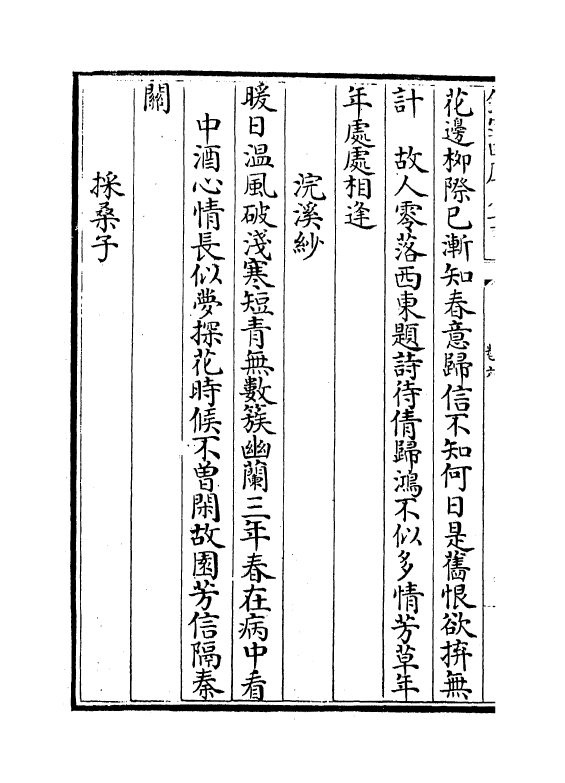 花邊柳際已漸知春意歸信不知何日是舊恨欲拚無
計　故人零落西東題詩待倩歸鴻不似多情芳草年
年處處相逢
浣溪紗
暖日温風破淺寒短青無數簇幽蘭三年春在病中看
中酒心情長似夢探花時候不曾閑故園芳信隔秦
關
採桑子